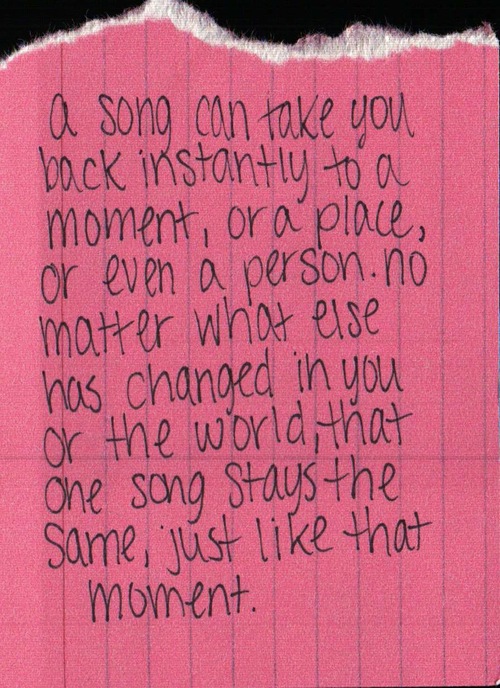 a song can take you
back instantly to a
moment, or a place,
or even a person. no
matter what else
has changed in you
or the world, that
one song stays the
same, just like that
moment.